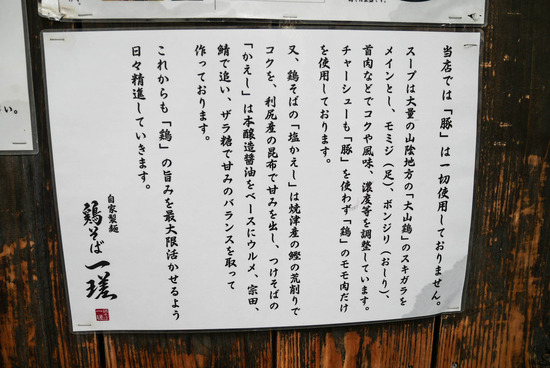 当店では「豚」は一切使用しておりません。
スープは大量の山陰地方の「大山鶏」のスキガラを
メインとし、モミジ(足)、ボンジリ(おしり)、
首肉などでコクや風味、濃度等を調整しています。
チャーシューも「豚」を使わず「鶏」のモモ肉だけ
を使用しております。
又、鶏そばの「塩かえし」は焼津産の鰹の荒削りで
コクを、利尻産の昆布で甘みを出し、つけそばの
「かえし」は本醸造醤油をベースにウルメ、宗田、
鯖で追い、ザラ糖で甘みのバランスを取って
作っております。
これからも「鶏」の旨みを最大限活かせるよう
日々精進していきます。
自家製麺
鶏そば一瑳
い。